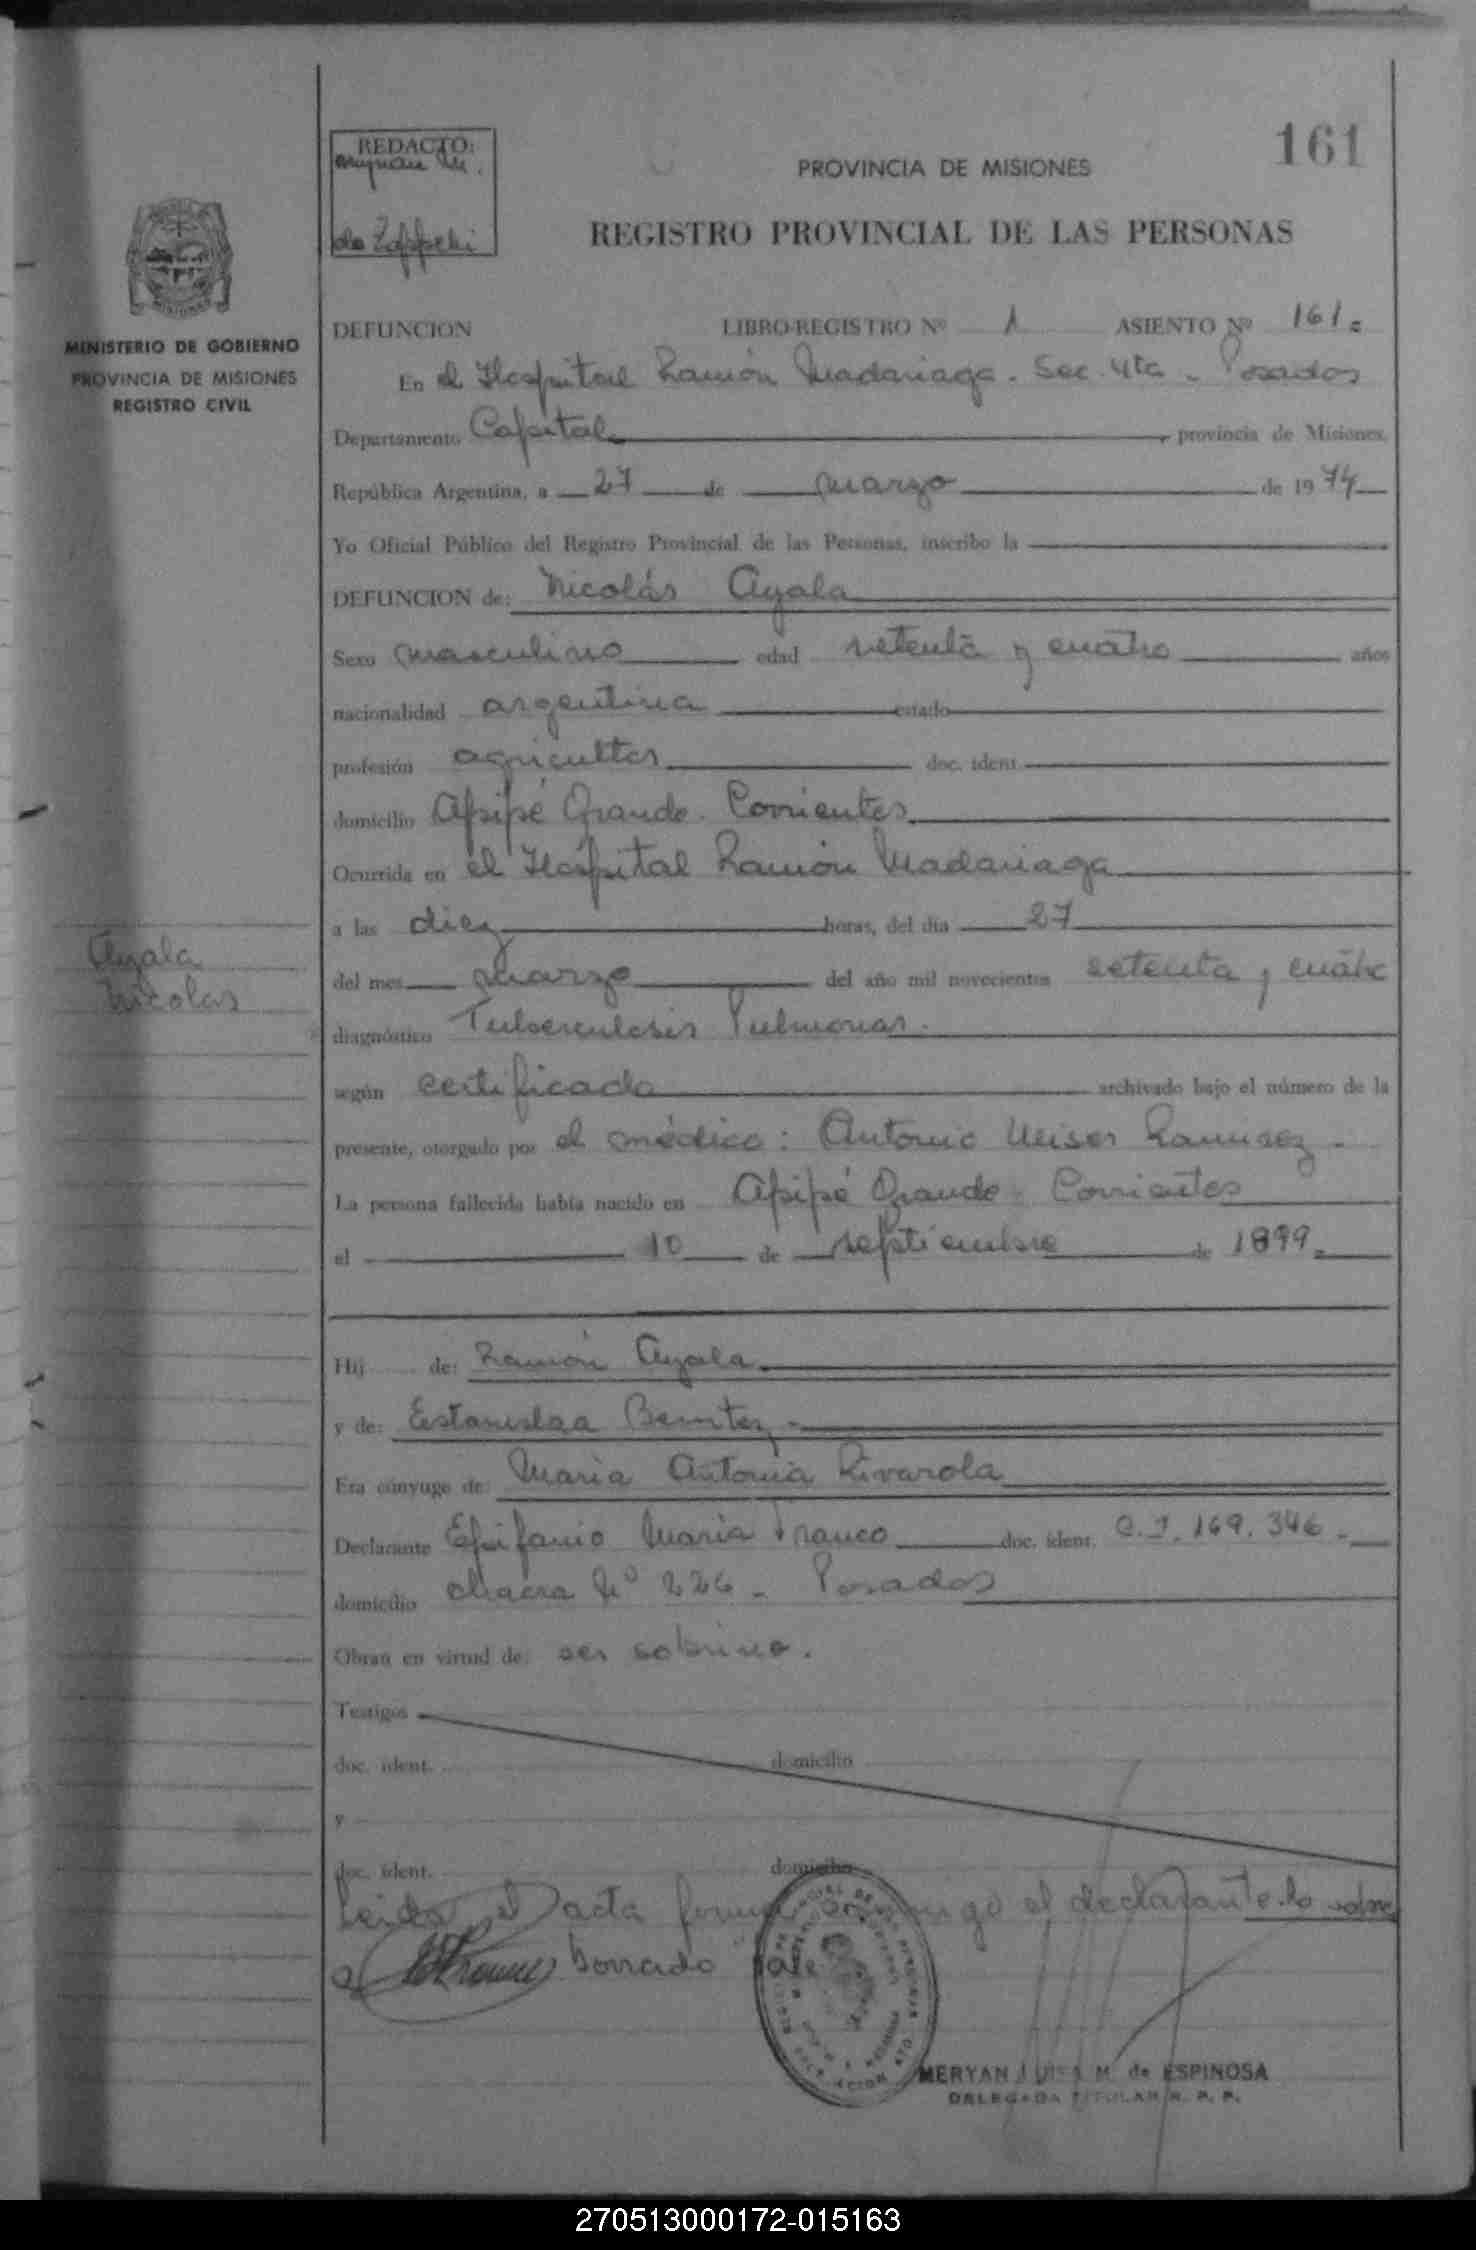 161
REDACTO:
de Zappelli
PROVINCIA DE MISIONES
REGISTRO PROVINCIAL DE LAS PERSONAS
MISIONES
MINISTERIO DE GOBIERNO
PROVINCIA DE MISIONES
REGISTRO CIVIL
DEFUNCION LIBRO-REGISTRO Nº 1 ASIENTO Nº 161.
En el Hospital Ramón Madariaga. Sec. 4ta - Posadas
Departamento Capital provincia de Misiones,
República Argentina, a 27 de marzo de 1974
Yo Oficial Público del Registro Provincial de las Personas, inscribo la
DEFUNCION de: Nicolás Ayala
Sexo masculino edad setenta y cuatro años
nacionalidad argentina estado
profesión agricultor doc. ident.
domicilio Apipé Grande. Corrientes
Ocurrida en el Hospital Ramón Madariaga
a las diez horas, del día 27
del mes marzo del año mil novecientos setenta y cuatro
diagnóstico Tuberculosis Pulmonar.
según certificado archivado bajo el número de la
presente, otorgado por el médico: Antonio Ramirez -
La persona fallecida había nacido en Apipé Grande - Corrientes
el 10 de septiembre de 1899
Hij de: Ramón Ayala
y de: Estanislaa Benitez
Era cónyuge de: Maria Antonia Rivarola
Declarante Epifanio Maria Franco doc. ident. C.I. 169.346 -
domicilio chacra Nº 226 - Posadas
Obran en virtud de: ser sobrino.
Testigos
doc. ident. domicilio
y
doc. ident. domicilio
Leida el acta el declarante lo sobre
borrado vale
Ayala
Nicolas
MERYAN LUISA M. de ESPINOSA
DELEGADA TITULAR R. P. P.
270513000172-015163